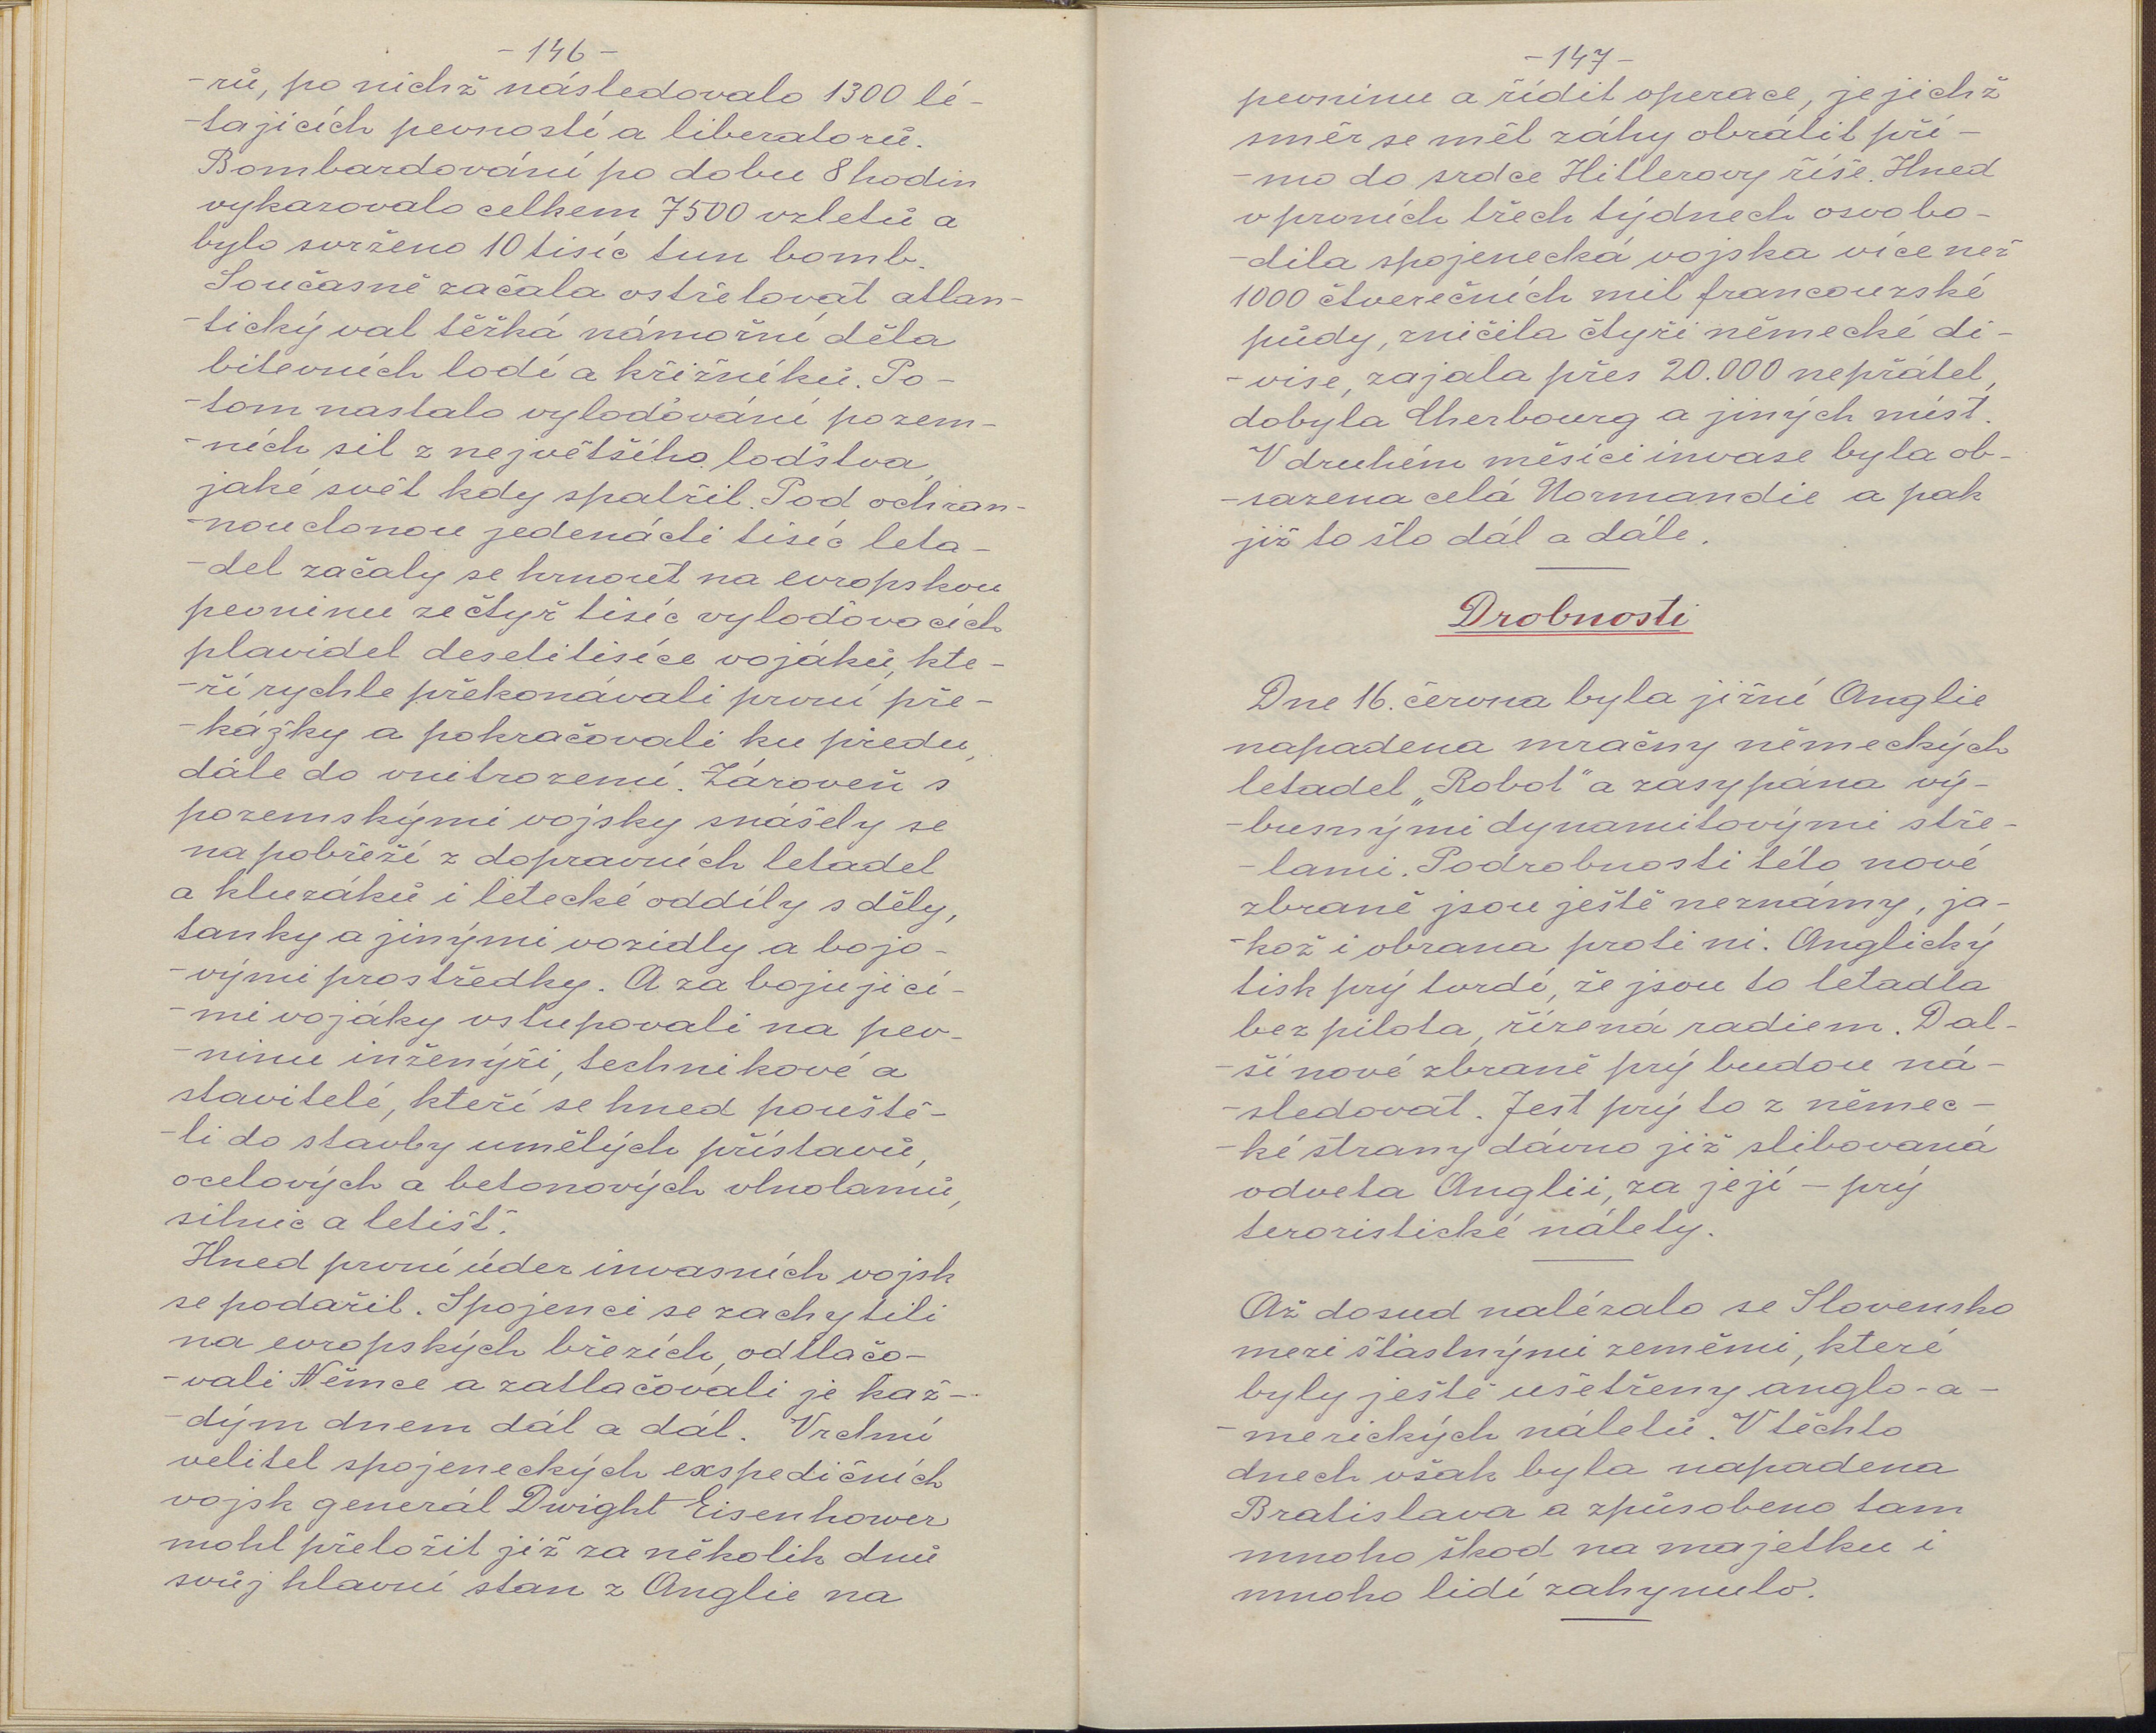 - 146 -
-rů, po nichž následovalo 1300 lé-
-tajících pevností a liberatorů.
Bombardování po dobu 8 hodin
vykazovalo celkem 7500 vzletů a
bylo svrženo 10 tisíc tun bomb.
Současně začala ostřelovat atlan-
-tický val těžká námořní děla
bitevních lodí a křižníků. Po-
-tom nastalo vyloďování pozem-
-ních sil z největšího loďstva,
jaké svět kdy spatřil. Pod ochran-
-nou clonou jedenácti tisíc leta-
-del začaly se hrnout na evropskou
pevninu ze čtyř tisíc vyloďovacích
plavidel desetitisíce vojáků, kte-
-ří rychle překonávali první pře-
-kážky a pokračovali ku předu,
dále do vnitrozemí. Zároveň s
pozemskými vojsky snášely se
na pobřeží z dopravních letadel
a kluzáků i letecké oddíly s děly,
tanky a jinými vozidly a bojo-
-vými prostředky. A za bojující-
-mi vojáky vstupovali na pev-
-ninu inženýři, technikové a
stavitelé, kteří se hned pouště-
-li do stavby umělých přístavů,
ocelových a betonových vlnolamů,
silnic a letišť.
Hned první úder invasních vojsk
se podařil. Spojenci se zachytili
na evropských březích, odtlačo-
-vali Němce a zatlačovali je kaž-
-dým dnem dál a dál. Vrchní
velitel spojeneckých exspedičních
vojsk generál Dwight Eisenhower
mohl přeložit již za několik dnů
svůj hlavní stan z Anglie na
- 147 -
pevninu a řídit operace, jejichž
směr se měl záhy obrátit pří-
-mo do srdce Hitlerovy říše. Hned
v prvních třech týdnech osvobo-
-dila spojenecká vojska více než
1000 čtverečních mil francouzské
půdy, zničila čtyři německé di-
-vise, zajala přes 20.000 nepřátel,
dobyla Cherbourg a jiných míst.
V druhém měsíci invase byla ob-
-sazena celá Normandie a pak
již to šlo dál a dále.
Drobnosti
Dne 16. června byla jižní Anglie
napadena mračny německých
letadel „Robot" a zasypána vý-
-busnými dynamitovými stře-
-lami. Podrobnosti této nové
zbraně jsou ještě neznámy, ja-
-kož i obrana proti ni. Anglický
tisk prý tvrdí, že jsou to letadla
bez pilota, řízená radiem. Dal-
-ší nové zbraně prý budou ná-
-sledovat. Jest prý to z němec-
-ké strany dávno již slibovaná
odveta Anglii, za její - prý
teroristické nálety.
Až dosud nalézalo se Slovensko
mezi šťastnými zeměmi, které
byly ještě ušetřeny anglo-a-
-merických náletů. V těchto
dnech však byla napadena
Bratislava a způsobeno tam
mnoho škod na majetku i
mnoho lidí zahynulo.